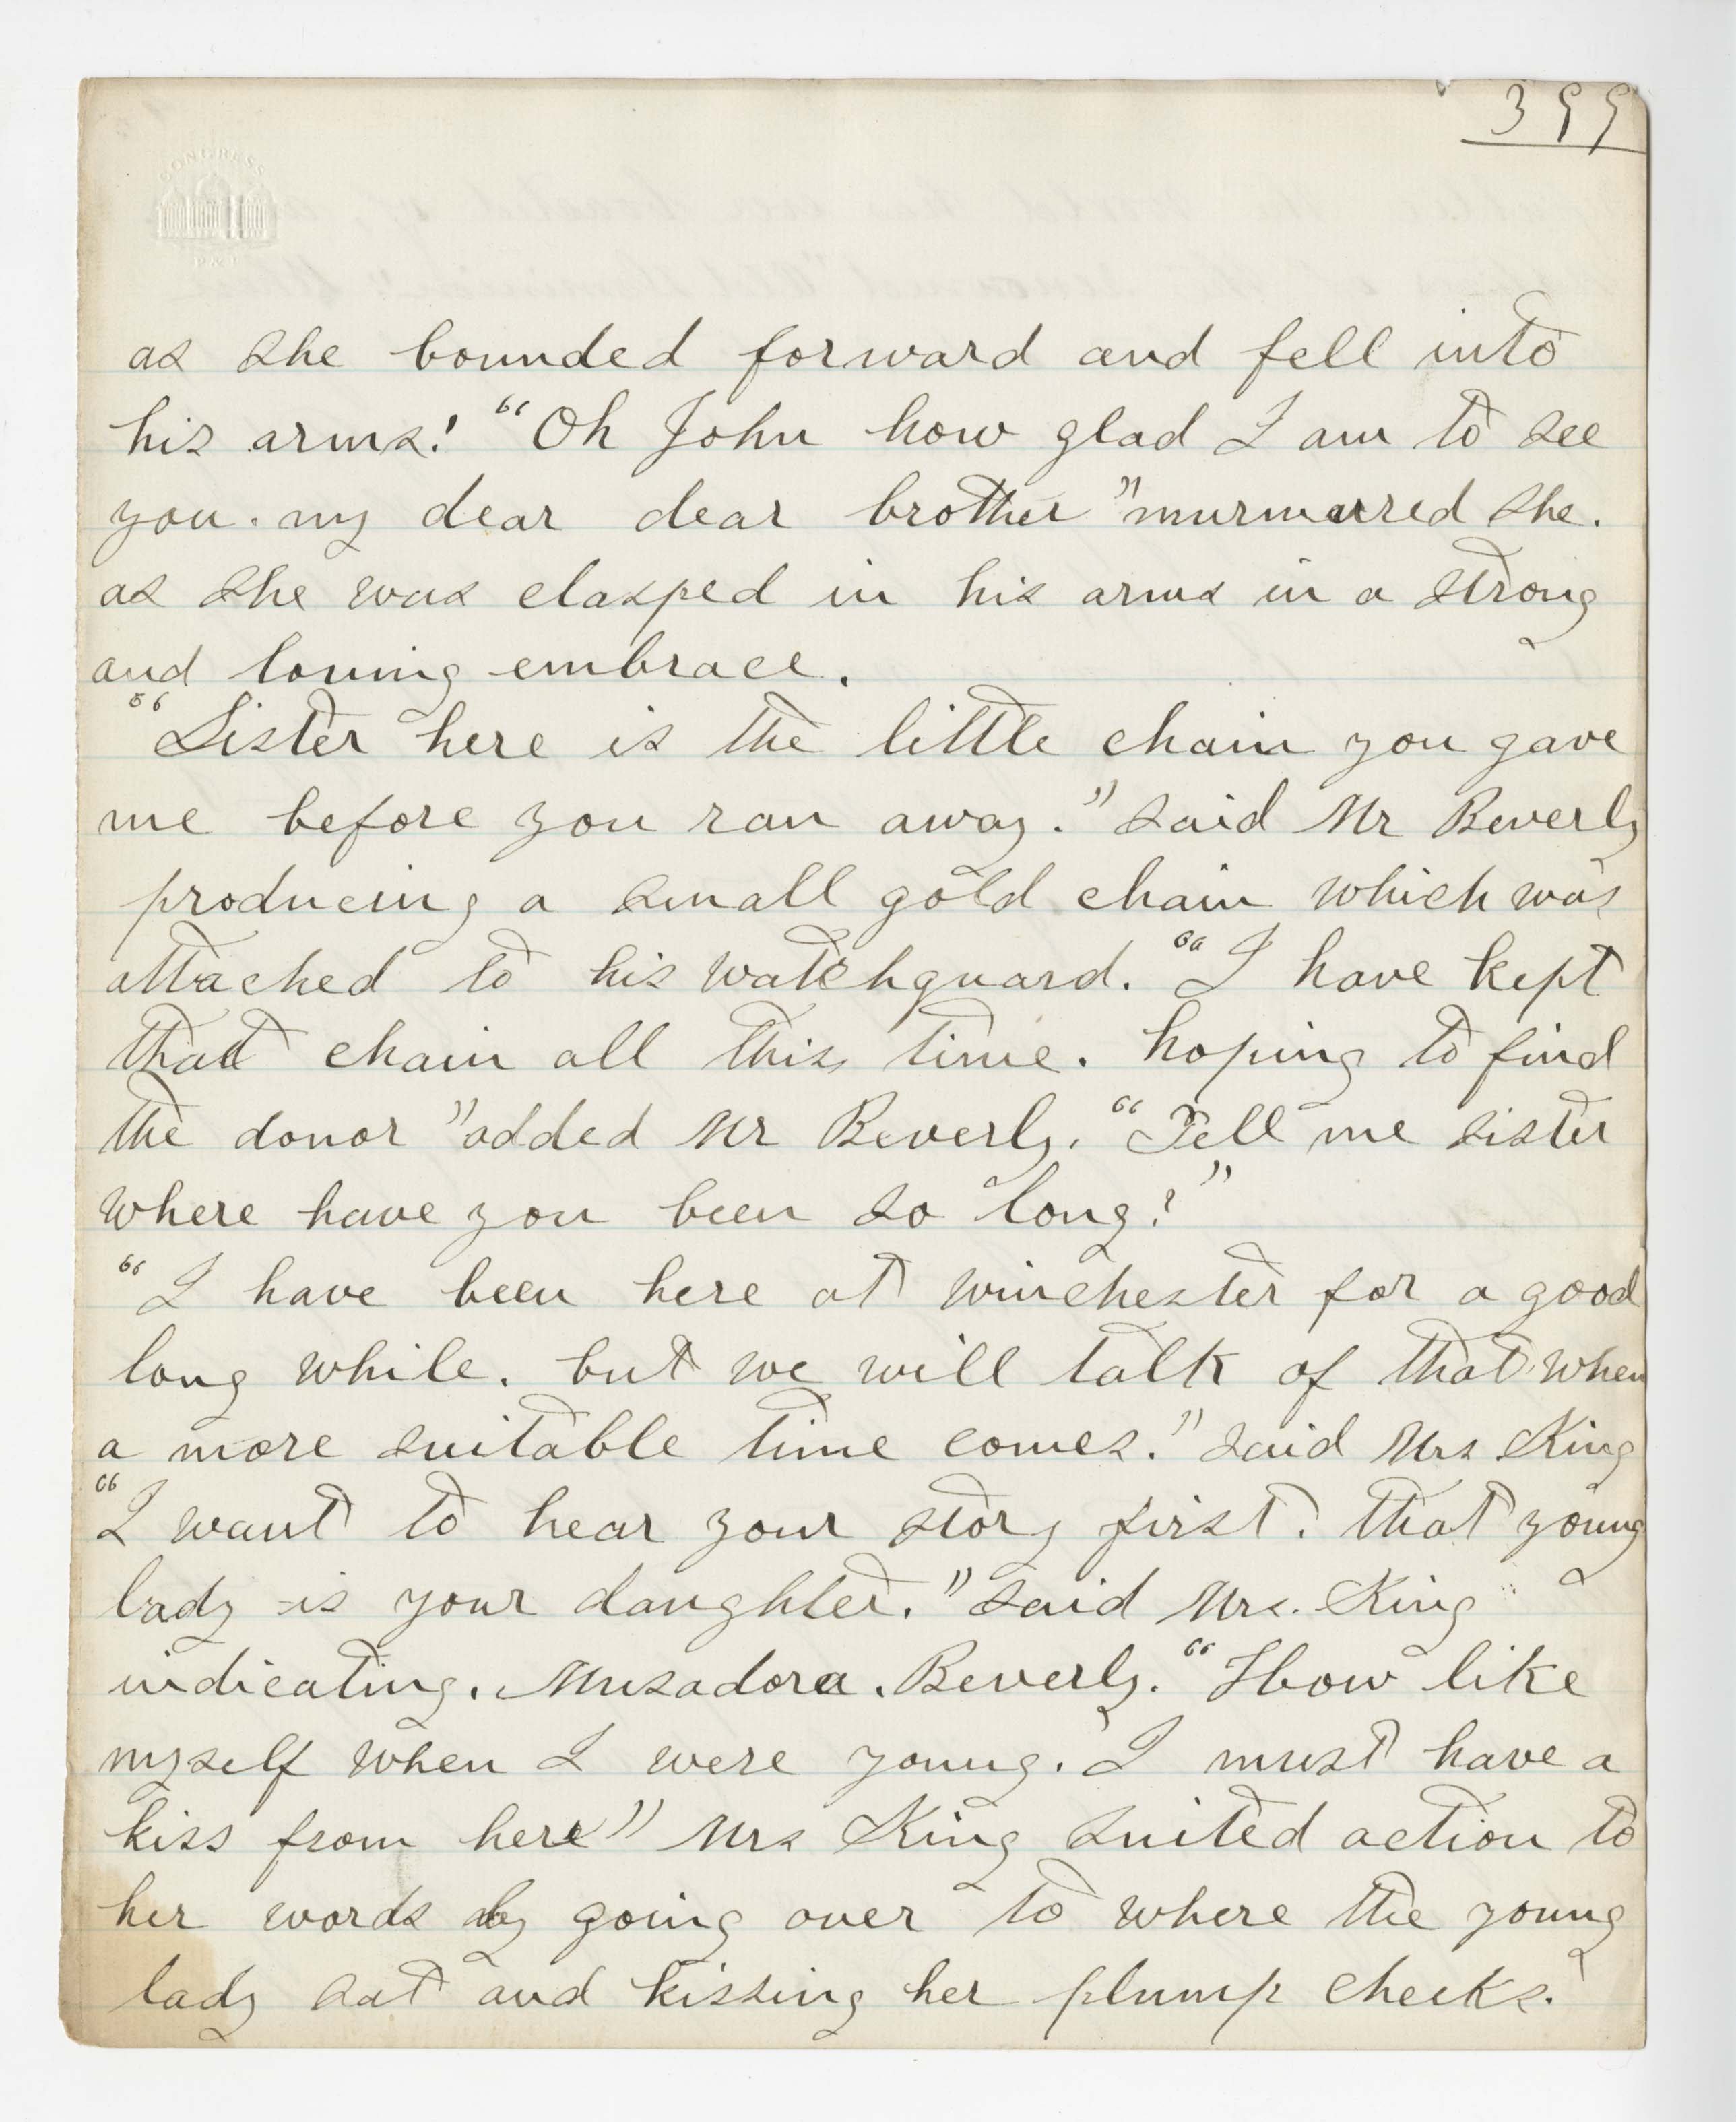 399
CONGRESS
P & P
as she bounded forward and fell into
his arms! "Oh John how glad I am to see
you. my dear dear brother" murmurred she.
as she was clasped in his arms in a strong
and loving embrace.
"Sister here is the little chain you gave
me before you ran away." said Mr Beverly
producing a small gold chain which was
attached to his watchguard. "I have kept
that chain all this time. hoping to find
the donor" added Mr Beverly. "Tell me sister
where have you been so long?"
"I have been here at Winchester for a good
long while. but we will talk of that when
a more suitable time comes." said Mrs King
"I want to hear your story first. that young
lady is your daughter." said Mrs. King
indicating. Musadora. Beverly. "How like
myself when I were young. I must have a
kiss from here" Mrs King suited action to
her words by going over to where the young
lady sat and kissing her plump cheeks.